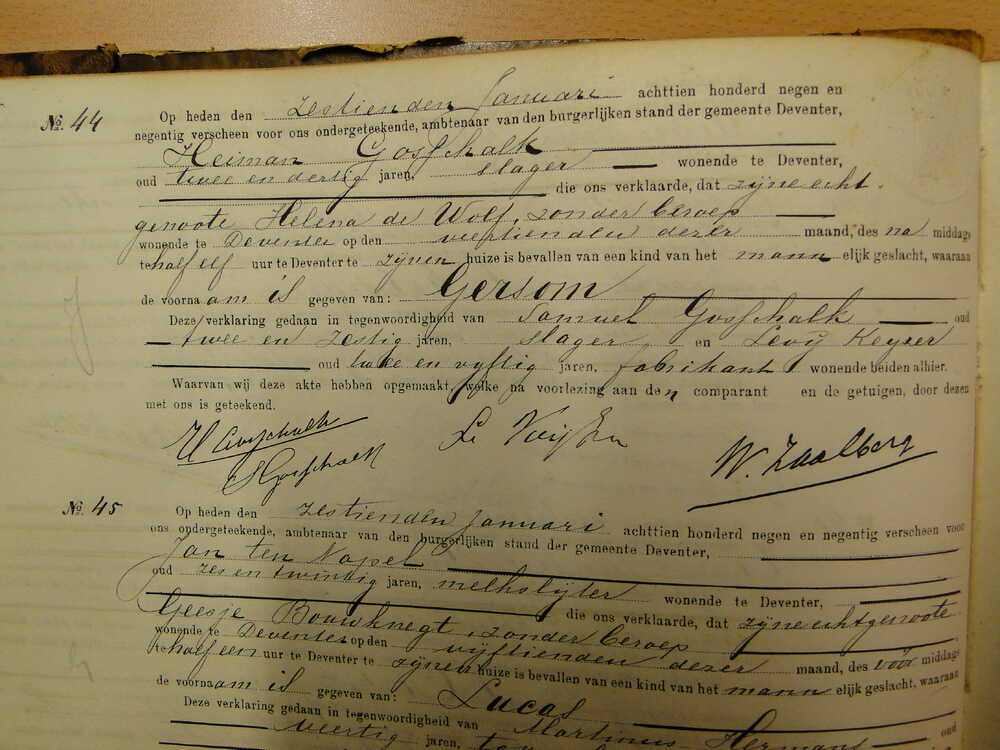 No. 44
Op heden den zestienden Januari achttien honderd negen en
negentig verscheen voor ons ondergeteekende, ambtenaar van den burgerlijken stand der gemeente Deventer,
Heiman Gosschalk
oud twee en dertig jaren, slager wonende te Deventer,
die ons verklaarde, dat zijne echt-
genoote Helena de Wolf, zonder beroep
wonende te Deventer op den veertienden dezer maand, des na middags
te half elf uur te Deventer te zijnen huize is bevallen van een kind van het mannelijk geslacht, waaraan
de voornaam is gegeven van: Gersom
Deze verklaring gedaan in tegenwoordigheid van Samuel Gosschalk oud
twee en zestig jaren, slager en Levij Keyzer
oud twee en vijftig jaren, fabrikant wonende beiden alhier.
Waarvan wij deze akte hebben opgemaakt, welke na voorlezing aan den comparant en de getuigen, door dezen
met ons is geteekend.
H Gosschalk
S Gosschalk
W. Zaalberg
No. 45
Op heden den zestienden Januari achttien honderd negen en negentig verscheen voor
ons ondergeteekende, ambtenaar van den burgerlijken stand der gemeente Deventer,
Jan ten Napel
oud zes en twintig jaren, melkslijter wonende te Deventer,
die ons verklaarde, dat zijne echtgenoote
Geesje Bouwknegt, zonder beroep
wonende te Deventer op den vijftienden dezer maand, des voor middags
te half een uur te Deventer te zijnen huize is bevallen van een kind van het mannelijk geslacht, waaraan
de voornaam is gegeven van: Lucas
Deze verklaring gedaan in tegenwoordigheid van Martinus Hermans oud
veertig jaren,